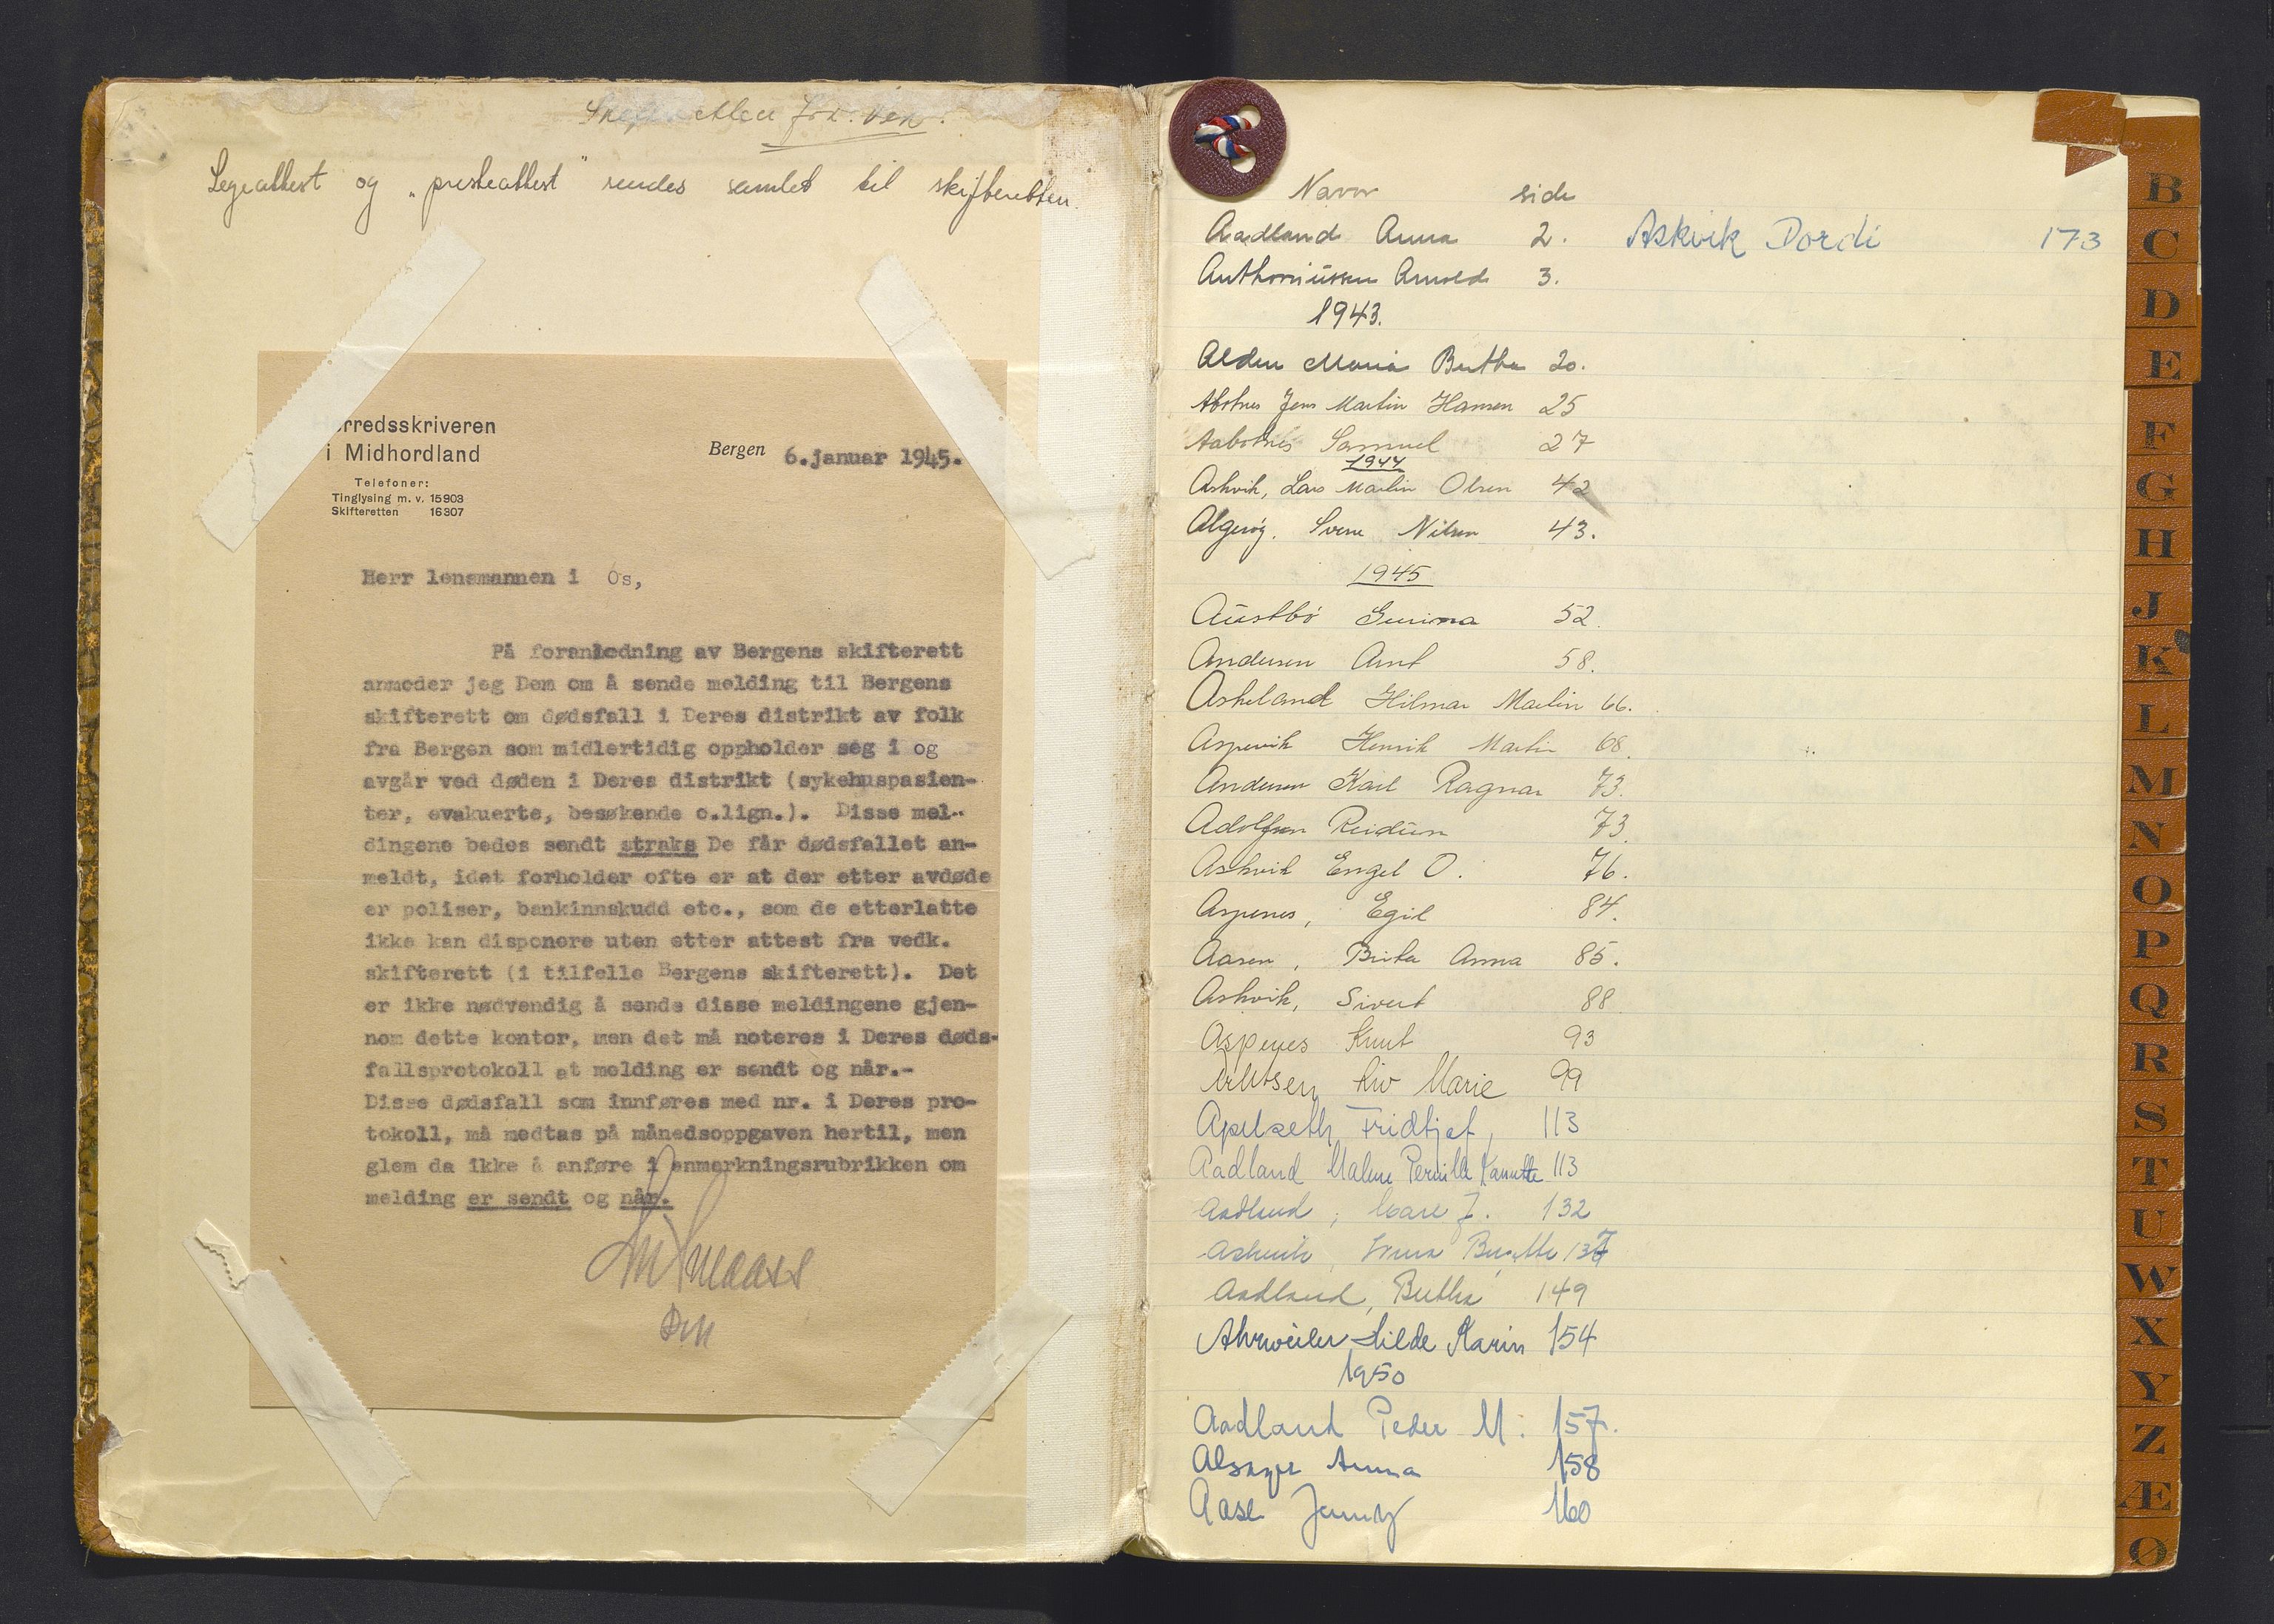 Legeattest og "presteattest" sendes samlet til skifteretten.
Herredsskriveren
i Midhordland
Telefoner:
Tinglysing m. v. 15903
Skifteretten 16307
Bergen 6.januar 1945.
Herr lensmannen i Os,
På foranledning av Bergens skifterett
anmoder jeg Dem om å sende melding til Bergens
skifterett om dødsfall i Deres distrikt av folk
fra Bergen som midlertidig oppholder seg i og
avgår ved døden i Deres distrikt (sykehuspasien-
ter, evakuerte, besøkende o.lign.). Disse mel-
dingene bedes sendt straks De får dødsfallet an-
meldt, idet forholder ofte er at der etter avdøde
er poliser, bankinnskudd etc., som de etterlatte
ikke kan disponere uten etter attest fra vedk.
skifterett (i tilfelle Bergens skifterett). Det
er ikke nødvendig å sende disse meldingene gjen-
nom dette kontor, men det må noteres i Deres døds-
fallsprotokoll at melding er sendt og når.-
Disse dødsfall som innføres med nr. i Deres pro-
tokoll, må medtas på månedsoppgaven hertil, men
glem da ikke å anføre i anmerkningsrubrikken om
melding er sendt og når.
Navn side
Aadland Anna 2. Askvik Dordi 173
Anthoniussen Arnold 3.
1943.
Alden Maria Berthe 20.
Abotnes Jens Martin Hansen 25
Aabotnes Samuel 27
1944
Askvik, Lars Martin Olsen 42
Algerøy. Sverre Nilsen 43.
1945
Austbø Gurina 52.
Andersen Arnt 58.
Askeland Hilmar Martin 66.
Aspevik Henrik Martin 68.
Andersen Karl Ragnar 73.
Adolfsen Reidun 73.
Askvik Engel O. 76.
Aspenes, Egil 84.
Aasen, Birta Anna 85.
Askvik, Sivert 88
Aspenes Knut 93
Liv Marie 99
Apelseth Fridtjof, 113
Aadland Malene Pernille Kanutte 113
Aadland, 132
Askvik, 137
Aadland, Bertha 149
Ahrweiler Hilde Karin 154
1950
Aadland Peder M. 157.
Anna 158
Aase Jenny 160
B
C
D
E
F
G
H
J
K
L
M
N
O
P
Q
R
S
T
U
W
X
Y
Z
Æ
Ø